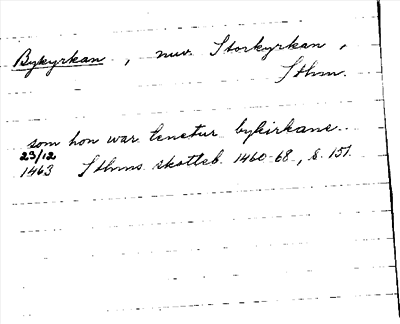 Bykyrkan, nuv. Storkyrkan,
Sthm.
som hon war tenetur bykirkane..
23/12
1463 Sthms skotteb. 1460-68, s. 151.